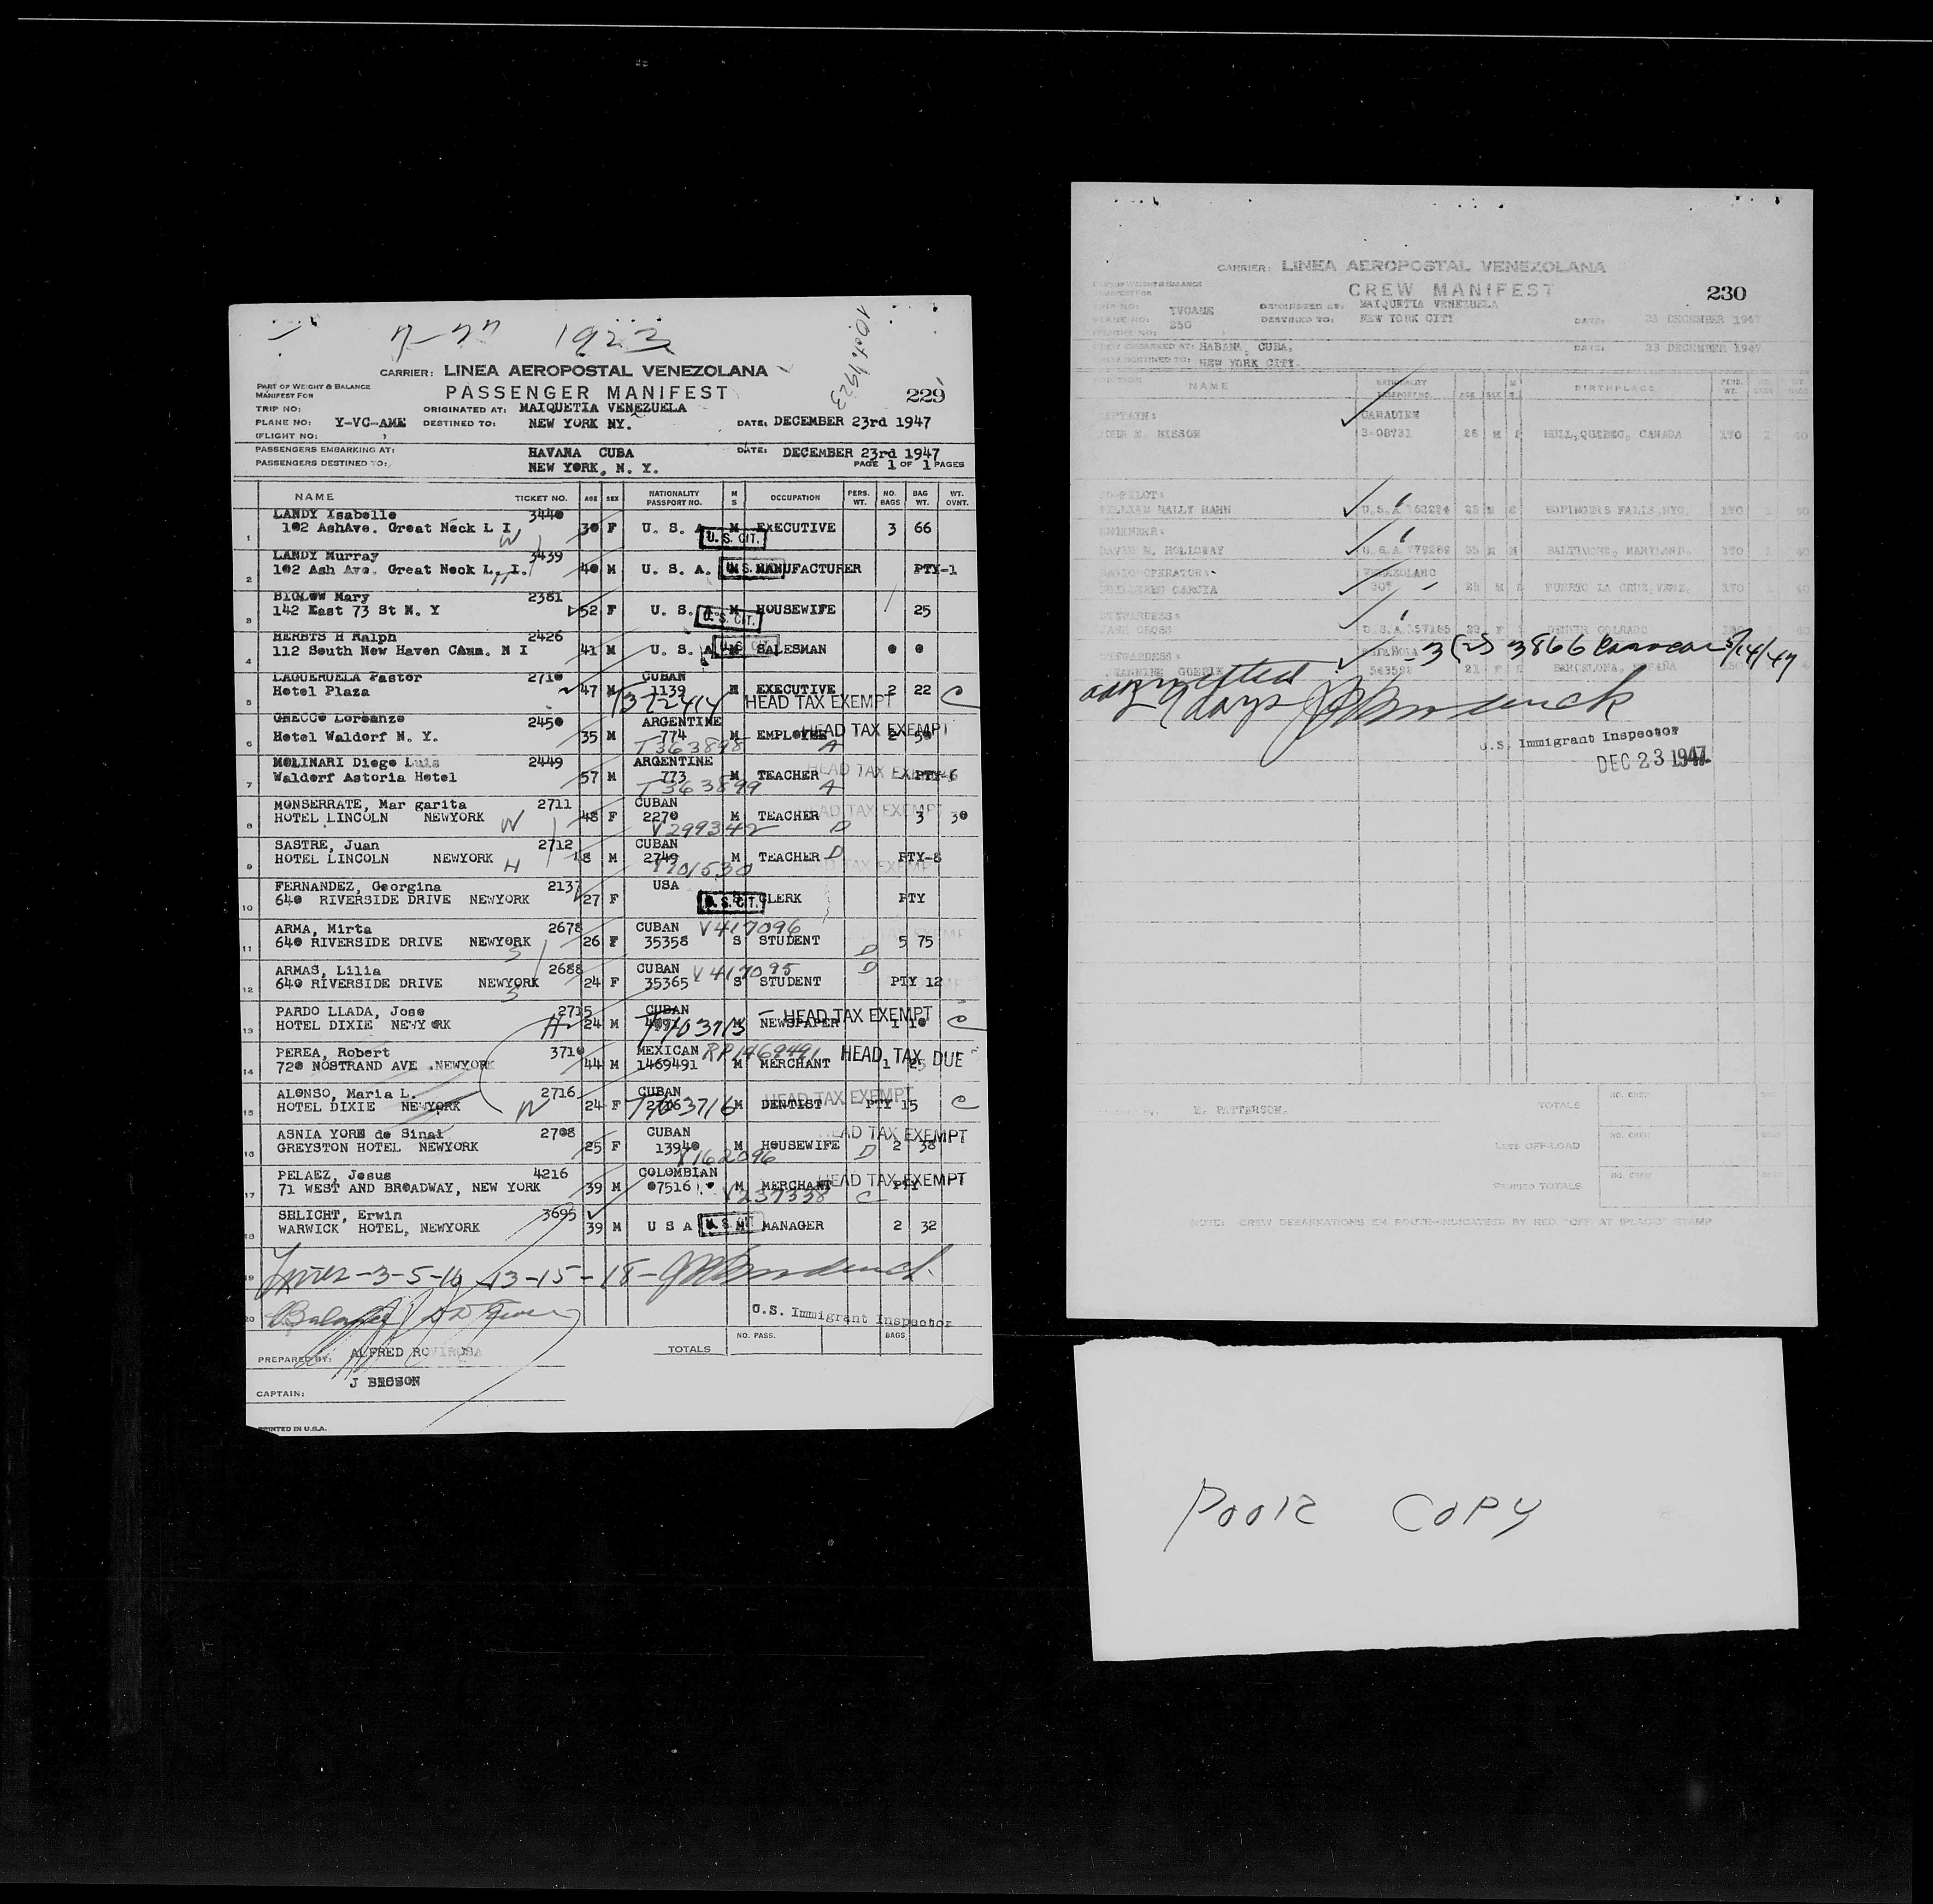 1923
10 at 1923
CARRIER: LINEA AEROPOSTAL VENEZOLANA
PART OF WEIGHT & BALANCE
MANIFEST FOR
PASSENGER MANIFEST
229
TRIP NO:
ORIGINATED AT: MAIQUETIA VENEZUELA
PLANE NO: Y-VC-AME DESTINED TO: NEW YORK NY. DATE: DECEMBER 23rd 1947
(FLIGHT NO: )
PASSENGERS EMBARKING AT: HAVANA CUBA DATE: DECEMBER 23rd 1947
PASSENGERS DESTINED TO: NEW YORK, N. Y. PAGE 1 OF 1 PAGES
NAME TICKET NO. AGE SEX NATIONALITY PASSPORT NO. M S OCCUPATION PERS. WT. NO. BAGS BAG WT. WT. OVNT.
LANDY Isabelle 3440
1 102 AshAve. Great Neck L I W 30 F U. S. A M EXECUTIVE 3 66
U. S. CIT.
LANDY Murray 3439
2 102 Ash Ave. Great Neck L. I. H 40 M U. S. A. M MANUFACTURER PTY-1
BIGLOW Mary 2381
3 142 East 73 St N. Y 52 F U. S. A M HOUSEWIFE 25
U. S. CIT.
HERBTS H Ralph 2426
4 112 South New Haven Conn. N I 41 M U. S. A M SALESMAN 0 0
LAGUERUELA Pastor 2710 CUBAN
5 Hotel Plaza 47 M 1139 M EXECUTIVE 2 22 C
T372414 HEAD TAX EXEMPT
GRECCO Loreanzo 2450 ARGENTINE
6 Hotel Waldorf N. Y. 35 M 774 M EMPLOYEE 2 50
HEAD TAX EXEMPT
T363898 A
MOLINARI Diego Luis 2449 ARGENTINE
7 Waldorf Astoria Hotel 57 M 773 M TEACHER PTY-6
HEAD TAX EXEMPT
T363899 A
MONSERRATE, Mar garita 2711 CUBAN
8 HOTEL LINCOLN NEWYORK W 48 F 2270 M TEACHER 3 30
HEAD TAX EXEMPT
V299342 D
SASTRE, Juan 2712 CUBAN
9 HOTEL LINCOLN NEWYORK H 48 M 2749 M TEACHER D PTY-8
HEAD TAX EXEMPT
V701530
FERNANDEZ, Georgina 2137 USA
10 640 RIVERSIDE DRIVE NEWYORK 27 F S CLERK PTY
U. S. CIT.
ARMA, Mirta 2678 CUBAN V417096
11 640 RIVERSIDE DRIVE NEWYORK S 26 F 35358 S STUDENT D 5 75
ARMAS, Lilia 2688 CUBAN V417095 D
12 640 RIVERSIDE DRIVE NEWYORK S 24 F 35365 S STUDENT PTY 12
PARDO LLADA, Jose 2715 CUBAN HEAD TAX EXEMPT
13 HOTEL DIXIE NEWYORK H 24 M T403715 M NEWSPAPER 1 10 C
PEREA, Robert 3710 MEXICAN RP1469491 HEAD TAX DUE
14 720 NOSTRAND AVE .NEWYORK 44 M 1469491 M MERCHANT 1 25
ALONSO, Maria L. 2716 CUBAN HEAD TAX EXEMPT
15 HOTEL DIXIE NEWYORK W 24 F T403716 M DENTIST PTY 15 C
ASNIA YORE de Sinai 2708 CUBAN HEAD TAX EXEMPT
16 GREYSTON HOTEL NEWYORK 25 F 13940 M HOUSEWIFE D 2 38
V162096
PELAEZ, Jesus 4216 COLOMBIAN HEAD TAX EXEMPT
17 71 WEST AND BROADWAY, NEW YORK 39 M 07516 M MERCHANT PTY
V237338 C
SHLICHT, Erwin 3695
18 WARWICK HOTEL, NEWYORK 39 M U S A M MANAGER 2 32
19 Lines-3-5-10-13-15-18-
20 Balance
U.S. Immigrant Inspector
TOTALS NO. PASS. BAGS
PREPARED BY: ALFRED ROVIROSA
J BISSON
CAPTAIN:
PRINTED IN U.S.A.
CARRIER: LINEA AEROPOSTAL VENEZOLANA
PART OF WEIGHT & BALANCE
MANIFEST FOR
CREW MANIFEST
230
TRIP NO: ORIGINATED AT: MAIQUETIA VENEZUELA
PLANE NO: YVCAME DESTINED TO: NEW YORK CITY DATE: 23 DECEMBER 1947
(FLIGHT NO: 250 )
CREW EMBARKED AT: HABANA, CUBA. DATE: 23 DECEMBER 1947
CREW DESTINED TO: NEW YORK CITY.
POSITION: NAME NATIONALITY PASSPORT NO. AGE SEX M S BIRTHPLACE PERS. WT. NO. BAGS WT. BAGS
CAPTAIN: CANADIEN
JOHN E. BISSON 3-08731 28 M HULL, QUEBEC, CANADA 170 1 40
CO-PILOT:
WILLIAM HALLY HAHN U.S.A 28 M S FALLS, NYC. 170 1 40
ENGINEER:
DAVID W. HOLLOWAY U.S.A 35 M M BALTIMORE, MARYLAND. 170 1 40
RADIO OPERATOR: VENEZOLANO
GUILLERMO GARCIA 25 M S PUERTO LA CRUZ, VENZ. 170 1 40
STEWARDESS:
JANE GROSS U.S.A 23 F DENVER COLORADO
STEWARDESS: ESPAÑOLA
21 F S BARCELONA, ESPAÑA
-3(2) 3866 Caracas 5/14/47
admitted
29 days
U.S. Immigrant Inspector
DEC 23 1947
E. PATTERSON.
TOTALS NO. CREW
LESS OFF-LOAD NO. CREW
REVISED TOTALS NO. CREW
NOTE: CREW DEBARKATIONS EN ROUTE-INDICATED BY RED "OFF AT (PLACE)" STAMP
POOR COPY